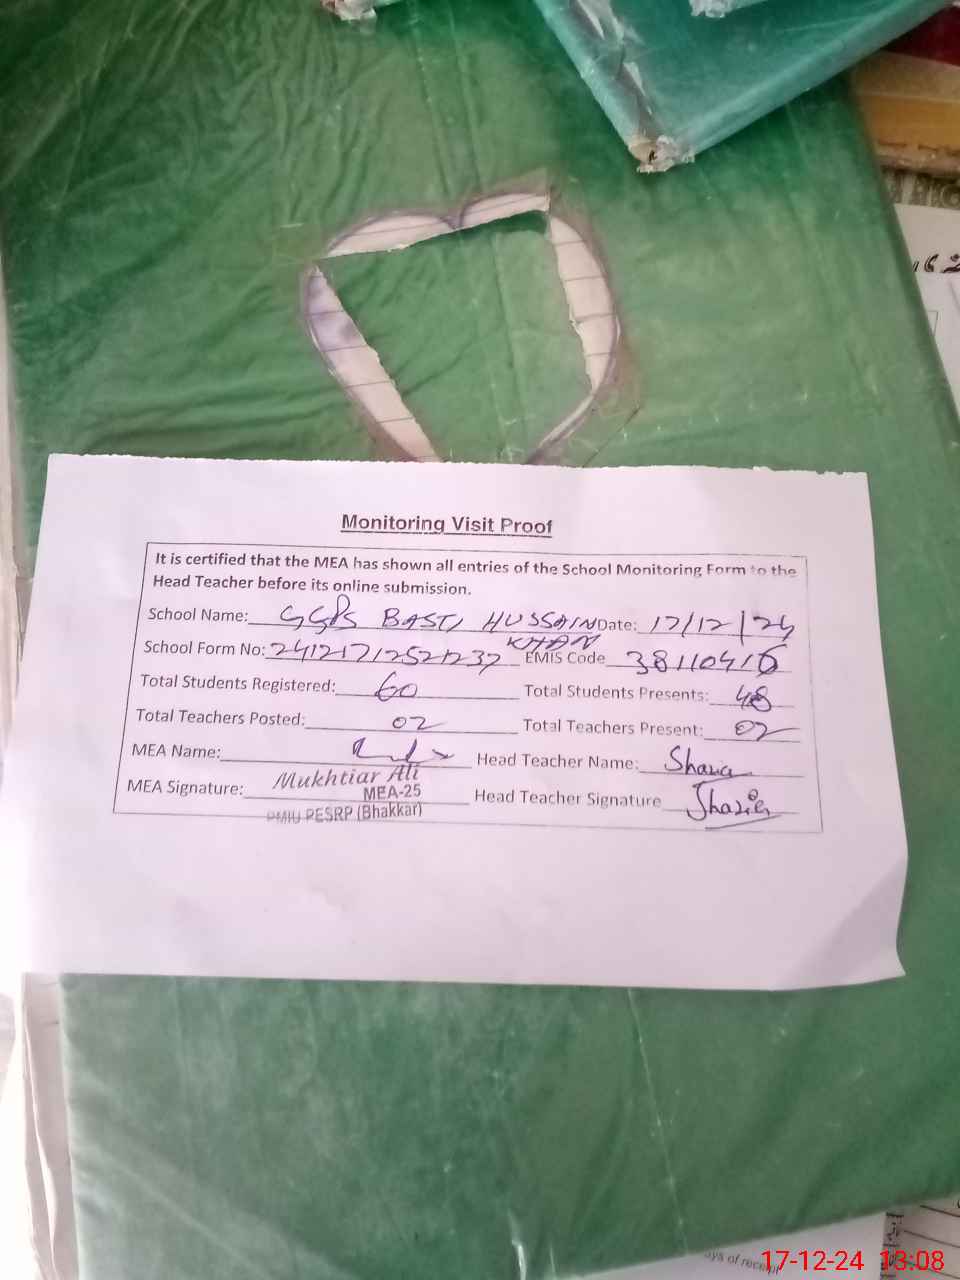 Monitoring Visit Proof
It is certified that the MEA has shown all entries of the School Monitoring Form to the
Head Teacher before its online submission.
School Name: GGPS BASTI HUSSAIN KHAN Date: 17/12/24
School Form No: 24121712521237 EMIS Code 38110416
Total Students Registered: 60 Total Students Presents: 48
Total Teachers Posted: 02 Total Teachers Present: 02
MEA Name: Head Teacher Name: Shazia
MEA Signature: Mukhtiar Ali Head Teacher Signature Shazia
MEA-25
PMIU PESRP (Bhakkar)
of receipt
17-12-24 13:08